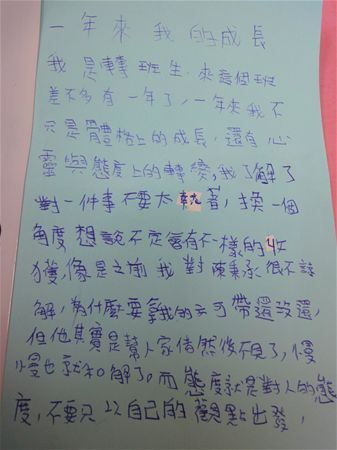 一年來我的成長
我是轉班生,來這個班
差不多有一年了,一年來我不
只是體格上的成長,還有心
靈與態度上的轉變,我了解了
對一件事不要太執著,換一個
角度想說不定會有不一樣的收
獲,像是之前我對陳秉承很不諒
解,為什麼要拿我的去可帶還沒還,
但他其實是幫人家借然後不見了,慢
慢也就知解了。而態度就是對人的態
度,不要只以自己的觀點出發,